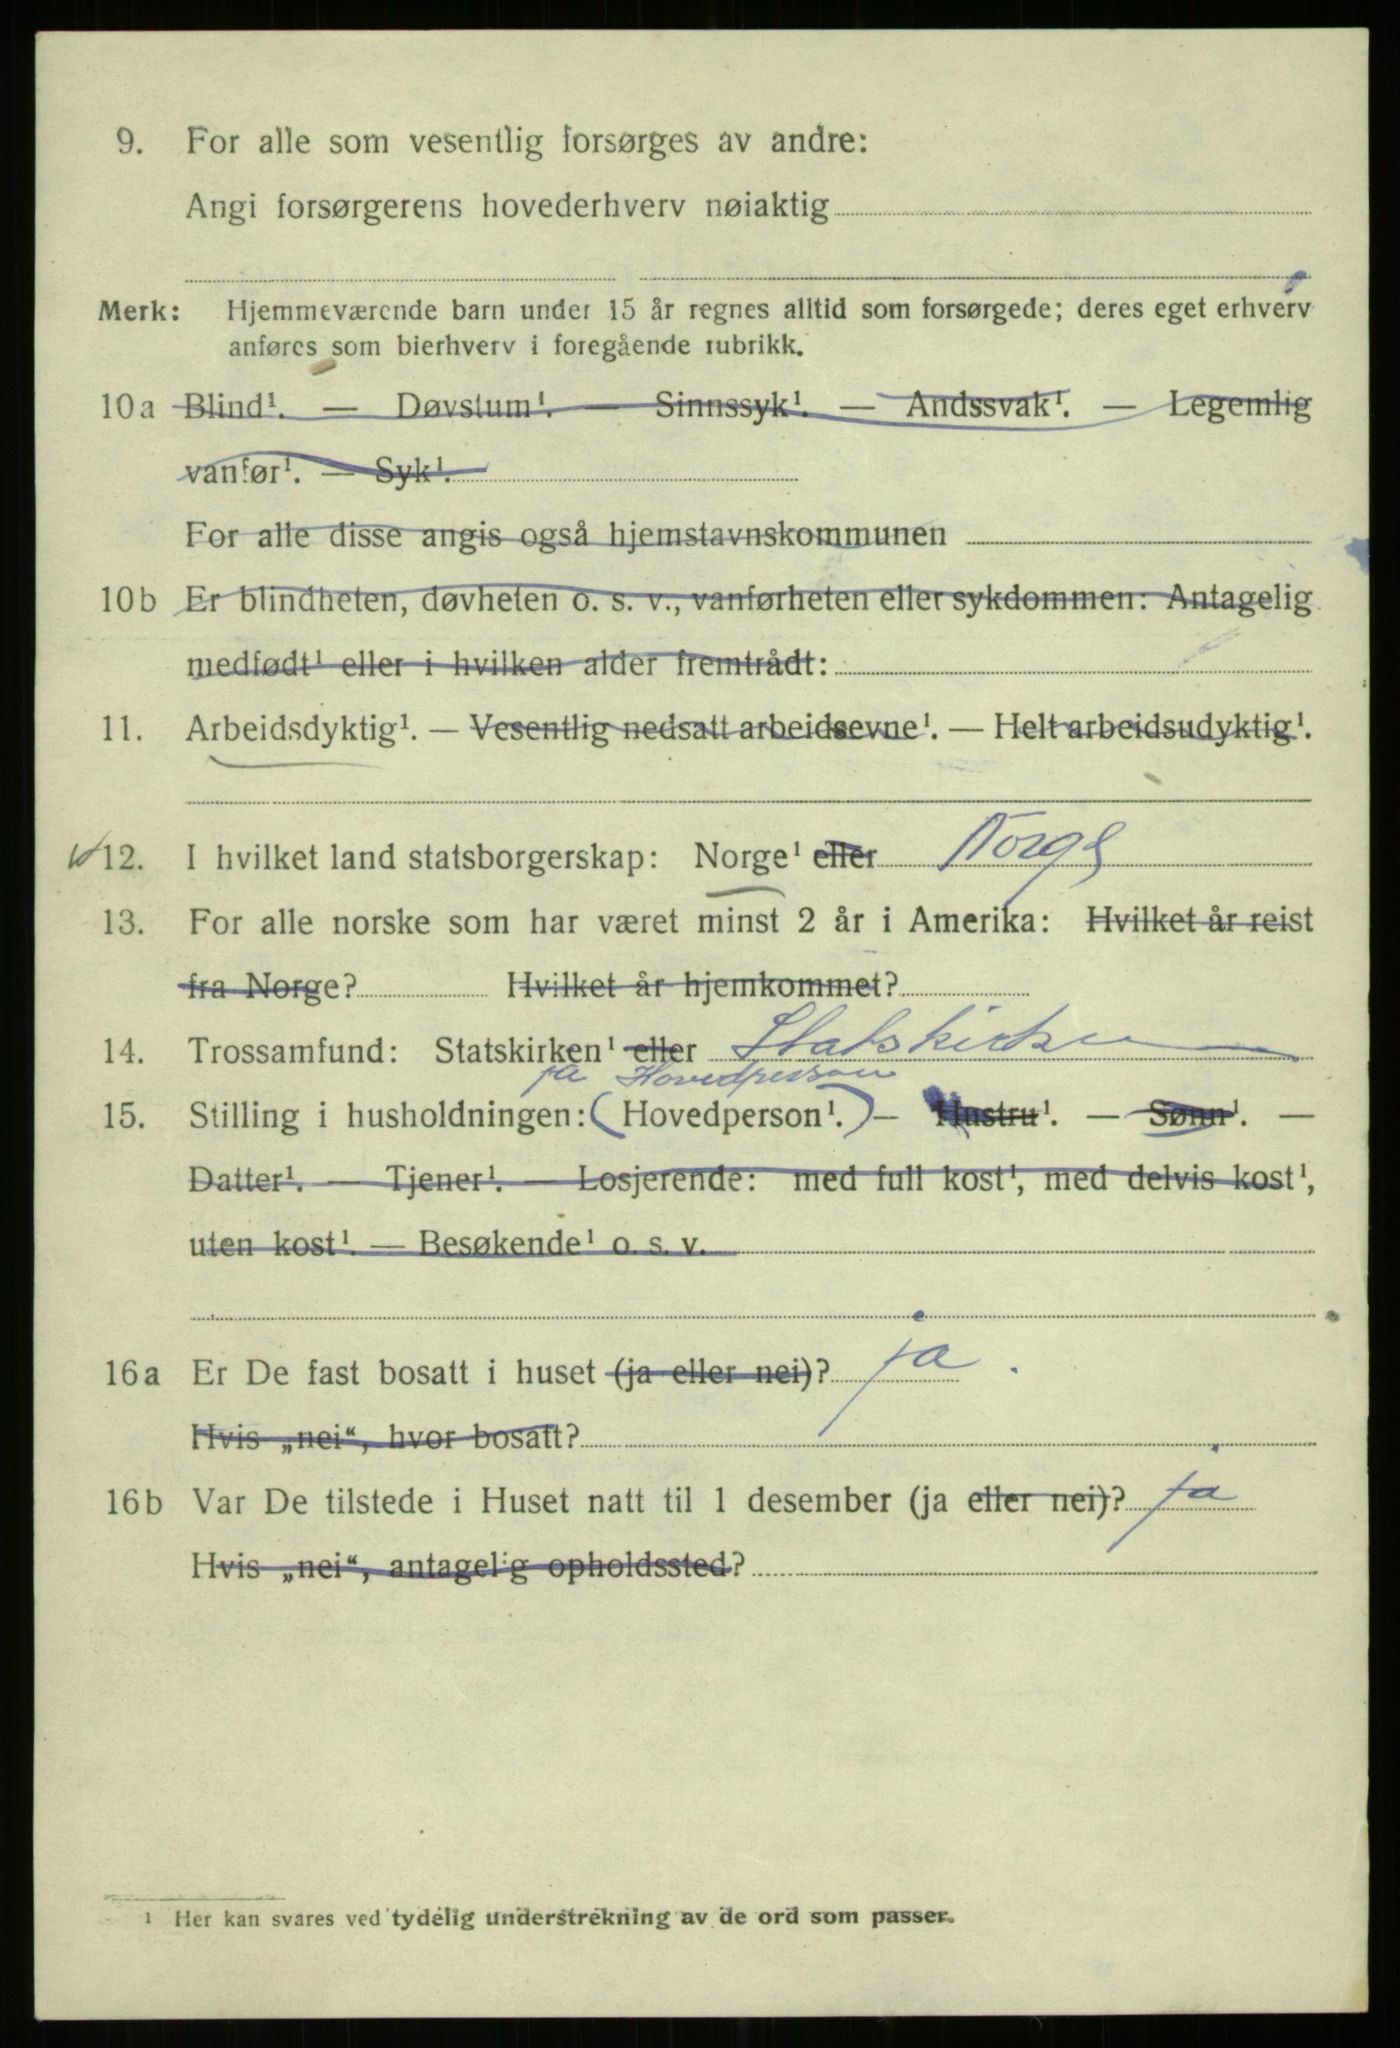 9. For alle som vesentlig forsørges av andre:
Angi forsørgerens hovederhverv nøiaktig
Merk: Hjemmeværende barn under 15 år regnes alltid som forsørgede; deres eget erhverv
anføres som bierhverv i foregående rubrikk.
10a Blind¹. — Døvstum¹. — Sinnssyk¹. — Åndssvak¹. — Legemlig
vanfør¹. — Syk¹.
For alle disse angis også hjemstavnskommunen
10b Er blindheten, døvheten o. s. v., vanførheten eller sykdommen: Antagelig
medfødt¹ eller i hvilken alder fremtrådt:
11. Arbeidsdyktig¹. — Vesentlig nedsatt arbeidsevne¹. — Helt arbeidsudyktig¹.
12. I hvilket land statsborgerskap: Norge¹ eller Norge
13. For alle norske som har været minst 2 år i Amerika: Hvilket år reist
fra Norge? Hvilket år hjemkommet?
14. Trossamfund: Statskirken¹ eller Statskirken
ja Hovedperson
15. Stilling i husholdningen: (Hovedperson¹.) — Hustru¹. — Sønn¹. —
Datter¹. — Tjener¹. — Losjerende: med full kost¹, med delvis kost¹,
uten kost¹. — Besøkende¹ o. s. v.
16a Er De fast bosatt i huset (ja eller nei)? ja.
Hvis „nei“, hvor bosatt?
16b Var De tilstede i Huset natt til 1 desember (ja eller nei)? ja
Hvis „nei“, antagelig opholdssted?
¹ Her kan svares ved tydelig understrekning av de ord som passer.